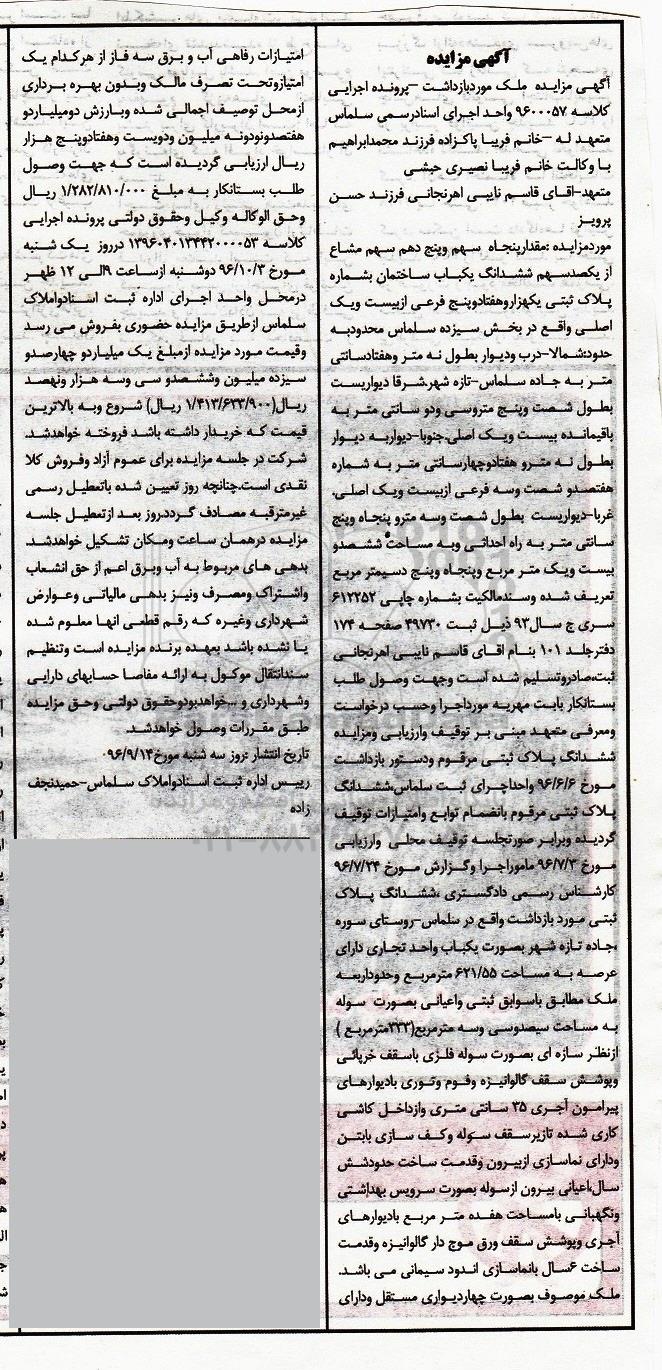 آگهی مزایده
آگهی مزایده ملک موردبازداشت –پرونده اجرایی
کلاسه ۹۶۰۰۰۵۷ واحد اجرای اسنادرسمی سلماس
متعهد له –خانم فریبا پاکزاده فرزند محمدابراهیم
با وکالت خانم فریبا نصیری حبشی
متعهد–اقای قاسم نایبی اهرنجانی فرزند حسن
پرویز
موردمزایده :مقدارپنجاه سهم وپنج دهم سهم مشاع
از یکصدسهم ششدانگ یکباب ساختمان بشماره
پلاک ثبتی یکهزاروهفتادوپنج فرعی ازبیست ویک
اصلی واقع در بخش سیزده سلماس محدودبه
حدود:شمالا–درب ودیوار بطول نه متر وهفتادسانتی
متر به جاده سلماس–تازه شهر.شرقا دیواریست
بطول شصت وپنج متروسی ودو سانتی متر به
باقیمانده بیست ویک اصلی.جنوبا–دیواربه دیوار
بطول نه مترو هفتادوچهارسانتی متر به شماره
هفتصدو شصت وسه فرعی ازبیست ویک اصلی.
غربا–دیواریست بطول شصت وسه مترو پنجاه وپنج
سانتی متر به راه احداثی وبه مساحت ششصدو
بیست ویک متر مربع وپنجاه وپنج دسیمتر مربع
تعریف شده وسندمالکیت بشماره چاپی ۶۱۲۲۵۲
سری ج سال۹۳ ذیل ثبت ۳۹۷۳۰ صفحه ۱۷۴
دفترجلد ۱۰۱ بنام اقای قاسم نایبی اهرنجانی
ثبت،صادروتسلیم شده است وجهت وصول طلب
بستانکار بابت مهریه مورداجرا وحسب درخواست
ومعرفی متعهد مبنی بر توقیف وارزیابی ومزایده
ششدانگ پلاک ثبتی مرقوم ودستور بازداشت
مورخ ۹۶/۶/۶ واحداجرای ثبت سلماس،ششدانگ
پلاک ثبتی مرقوم بانضمام توابع وامتیازات توقیف
گردیده وبرابر صورتجلسه توقیف محلی وارزیابی
مورخ ۹۶/۷/۳ ماموراجرا وگزارش مورخ ۹۶/۷/۲۴
کارشناس رسمی دادگستری ،ششدانگ پلاک
ثبتی مورد بازداشت واقع در سلماس–روستای سوره
،جاده تازه شهر بصورت یکباب واحد تجاری دارای
عرصه به مساحت ۶۲۱/۵۵ مترمربع وحدوداربعه
ملک مطابق باسوابق ثبتی واعیانی بصورت سوله
به مساحت سیصدوسی وسه مترمربع(۳۳۳مترمربع )
ازنظر سازه ای بصورت سوله فلزی باسقف خرپائی
وپوشش سقف گالوانیزه وفوم وتوری بادیوارهای
پیرامون آجری ۳۵ سانتی متری وازداخل کاشی
کاری شده تازیرسقف سوله وکف سازی بابتن
ودارای نماسازی ازبیرون وقدمت ساخت حدودشش
سال،اعیانی بیرون ازسوله بصورت سرویس بهداشتی
ونگهبانی بامساحت هفده متر مربع بادیوارهای
آجری وپوشش سقف ورق موج دار گالوانیزه وقدمت
ساخت ۶سال بانماسازی اندود سیمانی می باشد.
ملک موصوف بصورت چهاردیواری مستقل ودارای
امتیازات رفاهی آب و برق سه فاز از هرکدام یک
امتیازوتحت تصرف مالک وبدون بهره برداری
ازمحل توصیف اجمالی شده وبارزش دومیلیاردو
هفتصدونودونه میلیون ودویست وهفتادوپنج هزار
ریال ارزیابی گردیده است که جهت وصول
طلب بستانکار به مبلغ ۱/۲۸۲/۸۱۰/۰۰۰ ریال
وحق الوکاله وکیل وحقوق دولتی پرونده اجرایی
کلاسه ۱۳۹۶۰۴۰۱۳۴۴۲۰۰۰۰۵۳ درروز یک شنبه
مورخ ۹۶/۱۰/۳ دوشنبه ازساعت ۹الی ۱۲ ظهر
درمحل واحد اجرای اداره ثبت اسنادواملاک
سلماس ازطریق مزایده حضوری بفروش می رسد
وقیمت مورد مزایده ازمبلغ یک میلیاردو چهارصدو
سیزده میلیون وششصدو سی وسه هزار ونهصد
ریال(۱/۴۱۳/۶۳۳/۹۰۰ ریال) شروع وبه بالاترین
قیمت که خریدار داشته باشد فروخته خواهدشد.
شرکت در جلسه مزایده برای عموم آزاد وفروش کلا
نقدی است.چنانچه روز تعیین شده باتعطیل رسمی
غیرمترقبه مصادف گردد.روز بعد ازتعطیل جلسه
مزایده درهمان ساعت ومکان تشکیل خواهدشد.
بدهی های مربوط به آب وبرق اعم از حق انشعاب
واشتراک ومصرف ونیز بدهی مالیاتی وعوارض
شهرداری وغیره که رقم قطعی انها معلوم شده
یا نشده باشد بعهده برنده مزایده است وتنظیم
سندانتقال موکول به ارائه مفاصا حسابهای دارایی
وشهرداری و ...خواهدبودوحقوق دولتی وحق مزایده
طبق مقررات وصول خواهدشد.
تاریخ انتشار :روز سه شنبه مورخ۹۶/۹/۱۴
رییس اداره ثبت اسنادواملاک سلماس–حمیدنجف
زاده